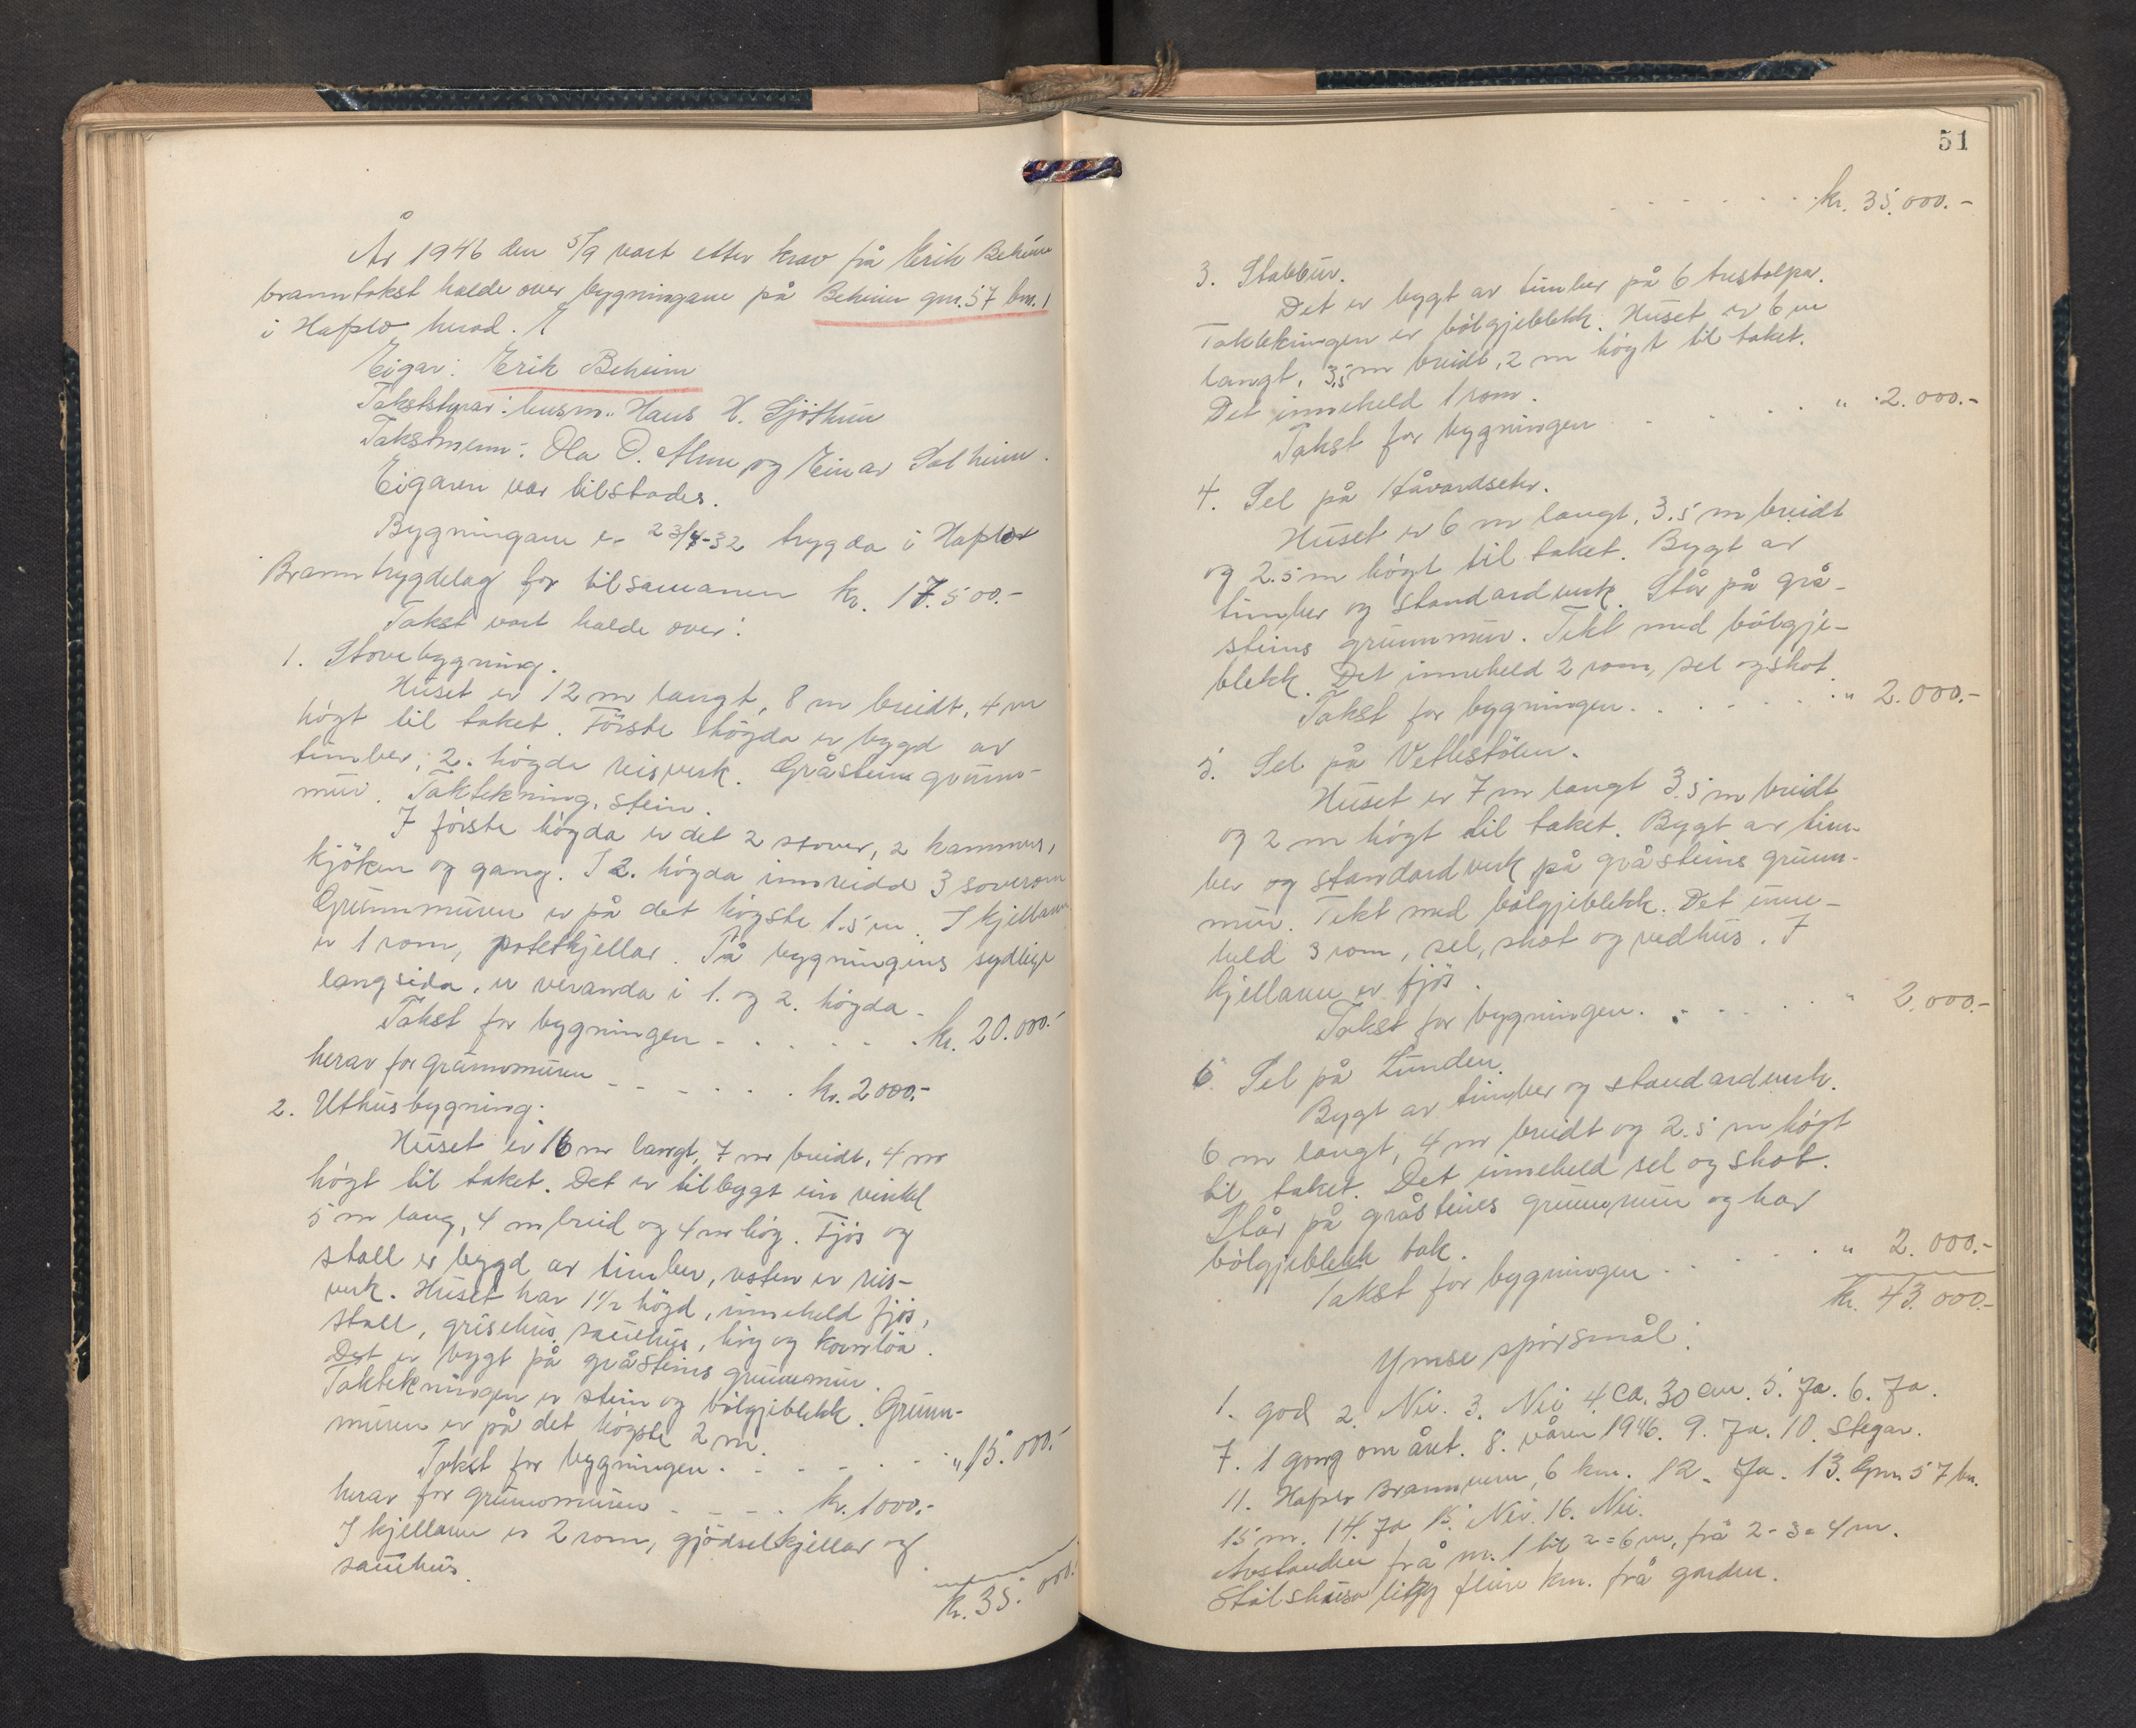 År 1946 den 5/9 vart etter krav frå Erik Beheim
branntakst halde over bygningane på Beheim gnr. 57 bnr. 1
i Hafslo herad.
Eigar: Erik Beheim
Takststyrar: lensm. Hans H. Sjøthun
Takstmenn: Ola O. Alme og Einar Solheim.
Eigaren var tilstades.
Bygningane er 23/4-32 trygda i Hafslo
Branntrygdelag for tilsamanen kr. 17.500.-
Takst vart halde over:
1. Stovebygning.
Huset er 12 m langt, 8 m breidt, 4 m
høgt til taket. Förste högda er bygd av
timber, 2. högde reisverk. Gråsteins grunn-
mur. Taktekning, stein.
I förste högda er det 2 stover, 2 kammers,
kjöken og gang. I 2. högda innreidd 3 soverom
Grunnmuren er på det högste 1.5 m. I kjellaren
er 1 rom, potetkjellar. På bygningens sydlege
langside, er veranda i 1. og 2. högda.
Takst for bygningen - - - - - - kr. 20.000.-
herav for grunnmuren - - - - - kr. 2000.-
2. Uthusbygning.
Huset er 16 m langt, 7 m breidt, 4 m
högt til taket. Det er tilbygt ein vinkel
5 m lang, 4 m breid og 4 m hög. Fjös og
stall er bygd av timber, resten er reis-
verk. Huset har 1 1/2 högd, inneheld fjös,
stall, grisehus, sauehus, höy og kornlöa.
Det er bygt på gråsteins grunnmur.
Taktekningen er stein og bölgjeblekk. Grunn-
muren er på det högste 2 m.
Takst for bygningen - - - - - - " 15.000.-
herav for grunnmuren - - - - kr. 1000.-
I kjellaren er 2 rom, gjödselkjellar og
sauehus.
kr. 35.000.
51
- - - - - - kr. 35.000.-
3. Stabbur.
Det er bygt av timber på 6 trestolpar.
Taktekningen er bölgjeblekk. Huset er 6 m
langt, 3,5 m breidt, 2 m högt til taket.
Det inneheld 1 rom.
Takst for bygningen - - - - - " 2.000.-
4. Sel på Håvardseter.
Huset er 6 m langt, 3.5 m breidt
og 2.5 m högt til taket. Bygt av
timber og standardverk. Står på grå-
steins grunnmur. Tekt med bölgje-
blekk. Det inneheld 2 rom, sel og skot.
Takst for bygningen. - - - - - " 2.000.-
5. Sel på Vetlestölen.
Huset er 7 m langt 3.5 m breidt
og 2 m högt til taket. Bygt av tim-
ber og standardverk på gråsteins grunn-
mur. Tekt med bölgjeblekk. Det inne-
held 3 rom, sel, skot og vedhus. I
kjellaren er fjös.
Takst for bygningen. - - - - " 2.000.-
6. Sel på Lunden.
Bygt av timber og standardverk.
6 m langt, 4 m breidt og 2.5 m högt
til taket. Det inneheld sel og skot.
Står på gråsteins grunnmur og har
bölgjeblekk tak.
Takst for bygningen - - - - - " 2.000.-
kr. 43.000.-
Ymse spörsmål:
1. god 2. Nei. 3. Nei 4. ca. 30 cm. 5. Ja. 6. Ja.
7. 1 gong om året. 8. våren 1946. 9. Ja. 10. Stegar.
11. Hafslo Brannvern, 6 km. 12. Ja. 13. Gnr. 57 bn.
15 m. 14. Ja 15. Nei. 16. Nei.
Avstanden frå nr. 1 til 2 = 6 m, frå 2 - 3 = 4 m.
Stölshusa ligg fleire km. frå garden.